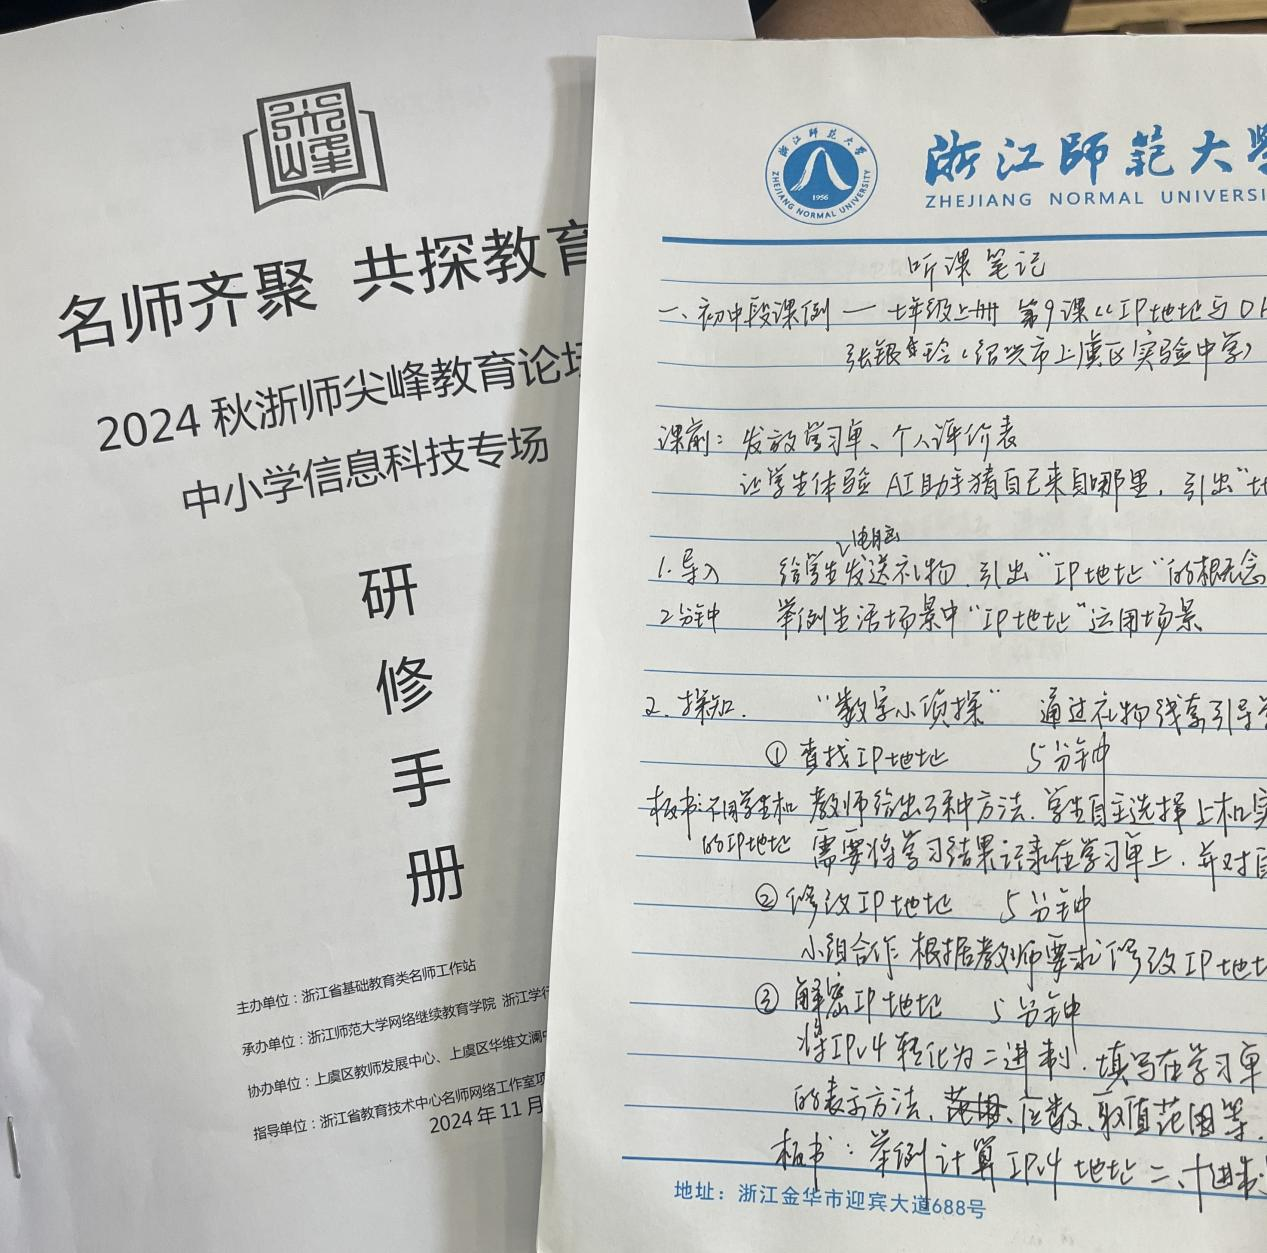 尖峰
名师齐聚 共探教育
2024 秋浙师尖峰教育论坛
中小学信息科技专场
研
修
手
册
主办单位：浙江省基础教育类名师工作站
承办单位：浙江师范大学网络继续教育学院 浙江学
协办单位：上虞区教师发展中心、上虞区华维文澜
指导单位：浙江省教育技术中心名师网络工作室项
2024 年 11 月
浙江师范大学
ZHEJIANG NORMAL UNIVERSITY
1956
浙江师范大学
ZHEJIANG NORMAL UNIVERSI
听课笔记
一、初中段课例 — 七年级上册 第9课《IP地址与D
张银玲（绍兴市上虞区实验中学）
课前：发放学习单、个人评价表
让学生体验 AI助手猜自己来自哪里，引出“地
电脑
1.导入 给学生发送礼物，引出“IP地址”的概念
2分钟 举例生活场景中“IP地址”运用场景
2.探知. “数字小侦探” 通过礼物线索引导
① 查找IP地址 5分钟
板书：不同学生机 教师给出3种方法，学生自主选择上机实
的IP地址 需要将学习结果记录在学习单上，并对
② 修改IP地址 5分钟
小组合作 根据教师要求修改IP地
③ 解密IP地址 5分钟
将IPv4转化为二进制，填写在学习单
的表示方法、范围、位数、取值范围等.
板书：举例计算IPv4地址二、十进制
地址：浙江金华市迎宾大道688号